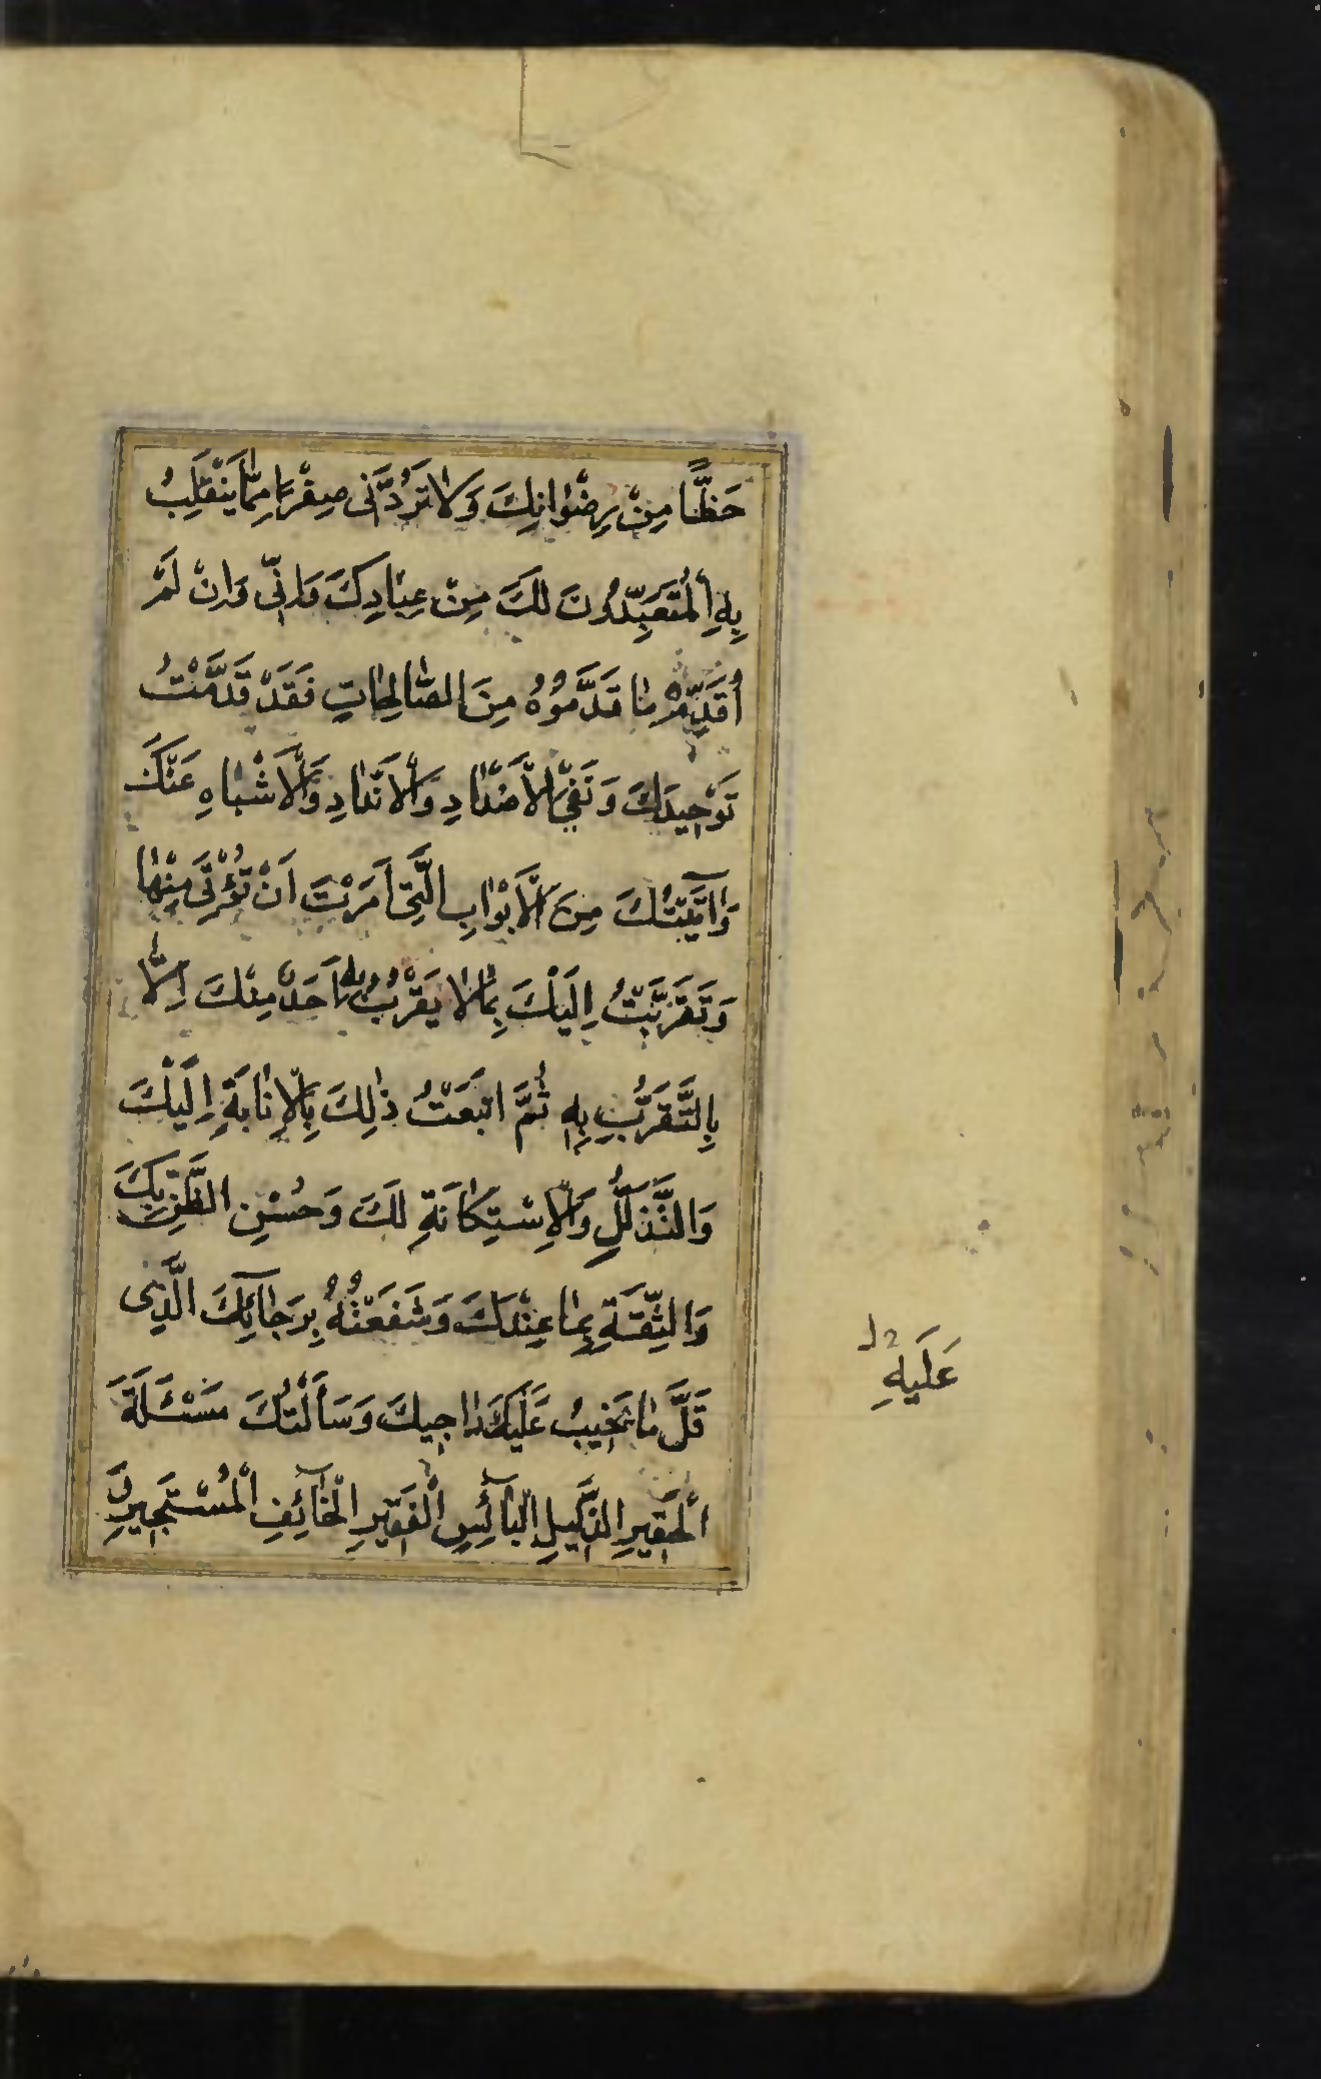 حَظًّا مِنْ رِضْوانِكَ وَلا تَرُدَّنی صِفْرًا مِمّا يَنْقَلِبُ
بِهِ الْمُتَعَبِّدُونَ لَكَ مِنْ عِبادِكَ وَاِنّی وَاِنْ لَمْ
اُقَدِّمْ ما قَدَّمُوُهُ مِنَ الصّالِحاتِ فَقَدْ قَدَّمْتُ
تَوْحيدَكَ وَنَفْیَ الْاَضْدادِ وَالْاَنْدادِ وَالْاَشْباهِ عَنْكَ
وَاَتَيْتُكَ مِنَ الْاَبْوابِ الَّتی اَمَرْتَ اَنْ تُؤْتی مِنْها
وَتَقَرَّبْتُ اِلَيْكَ بِما لا يَقْرُبُ بِهِ اَحَدٌ مِنْكَ اِلّا
بِالتَّقَرُّبِ بِهِ ثُمَّ اتْبَعْتُ ذلِكَ بِالْاِنابَةِ اِلَيْكَ
وَالتَّذَلُّلِ وَالْاِسْتِكانَةِ لَكَ وَحُسْنِ الظَّنِّ بِكَ
وَالثِّقَةِ بِما عِنْدَكَ وَشَفَعْتُهُ بِرَجآئِكَ الَّذی
قَلَّ ما يَخيبُ عَلَيْكَ راجيكَ وَسَاَلْتُكَ مَسْئَلَةَ
الْحَقيرِ الذَّليلِ الْبآئِسِ الْفَقيرِ الْخآئِفِ الْمُسْتَجيرِ
عَلَيْهِ